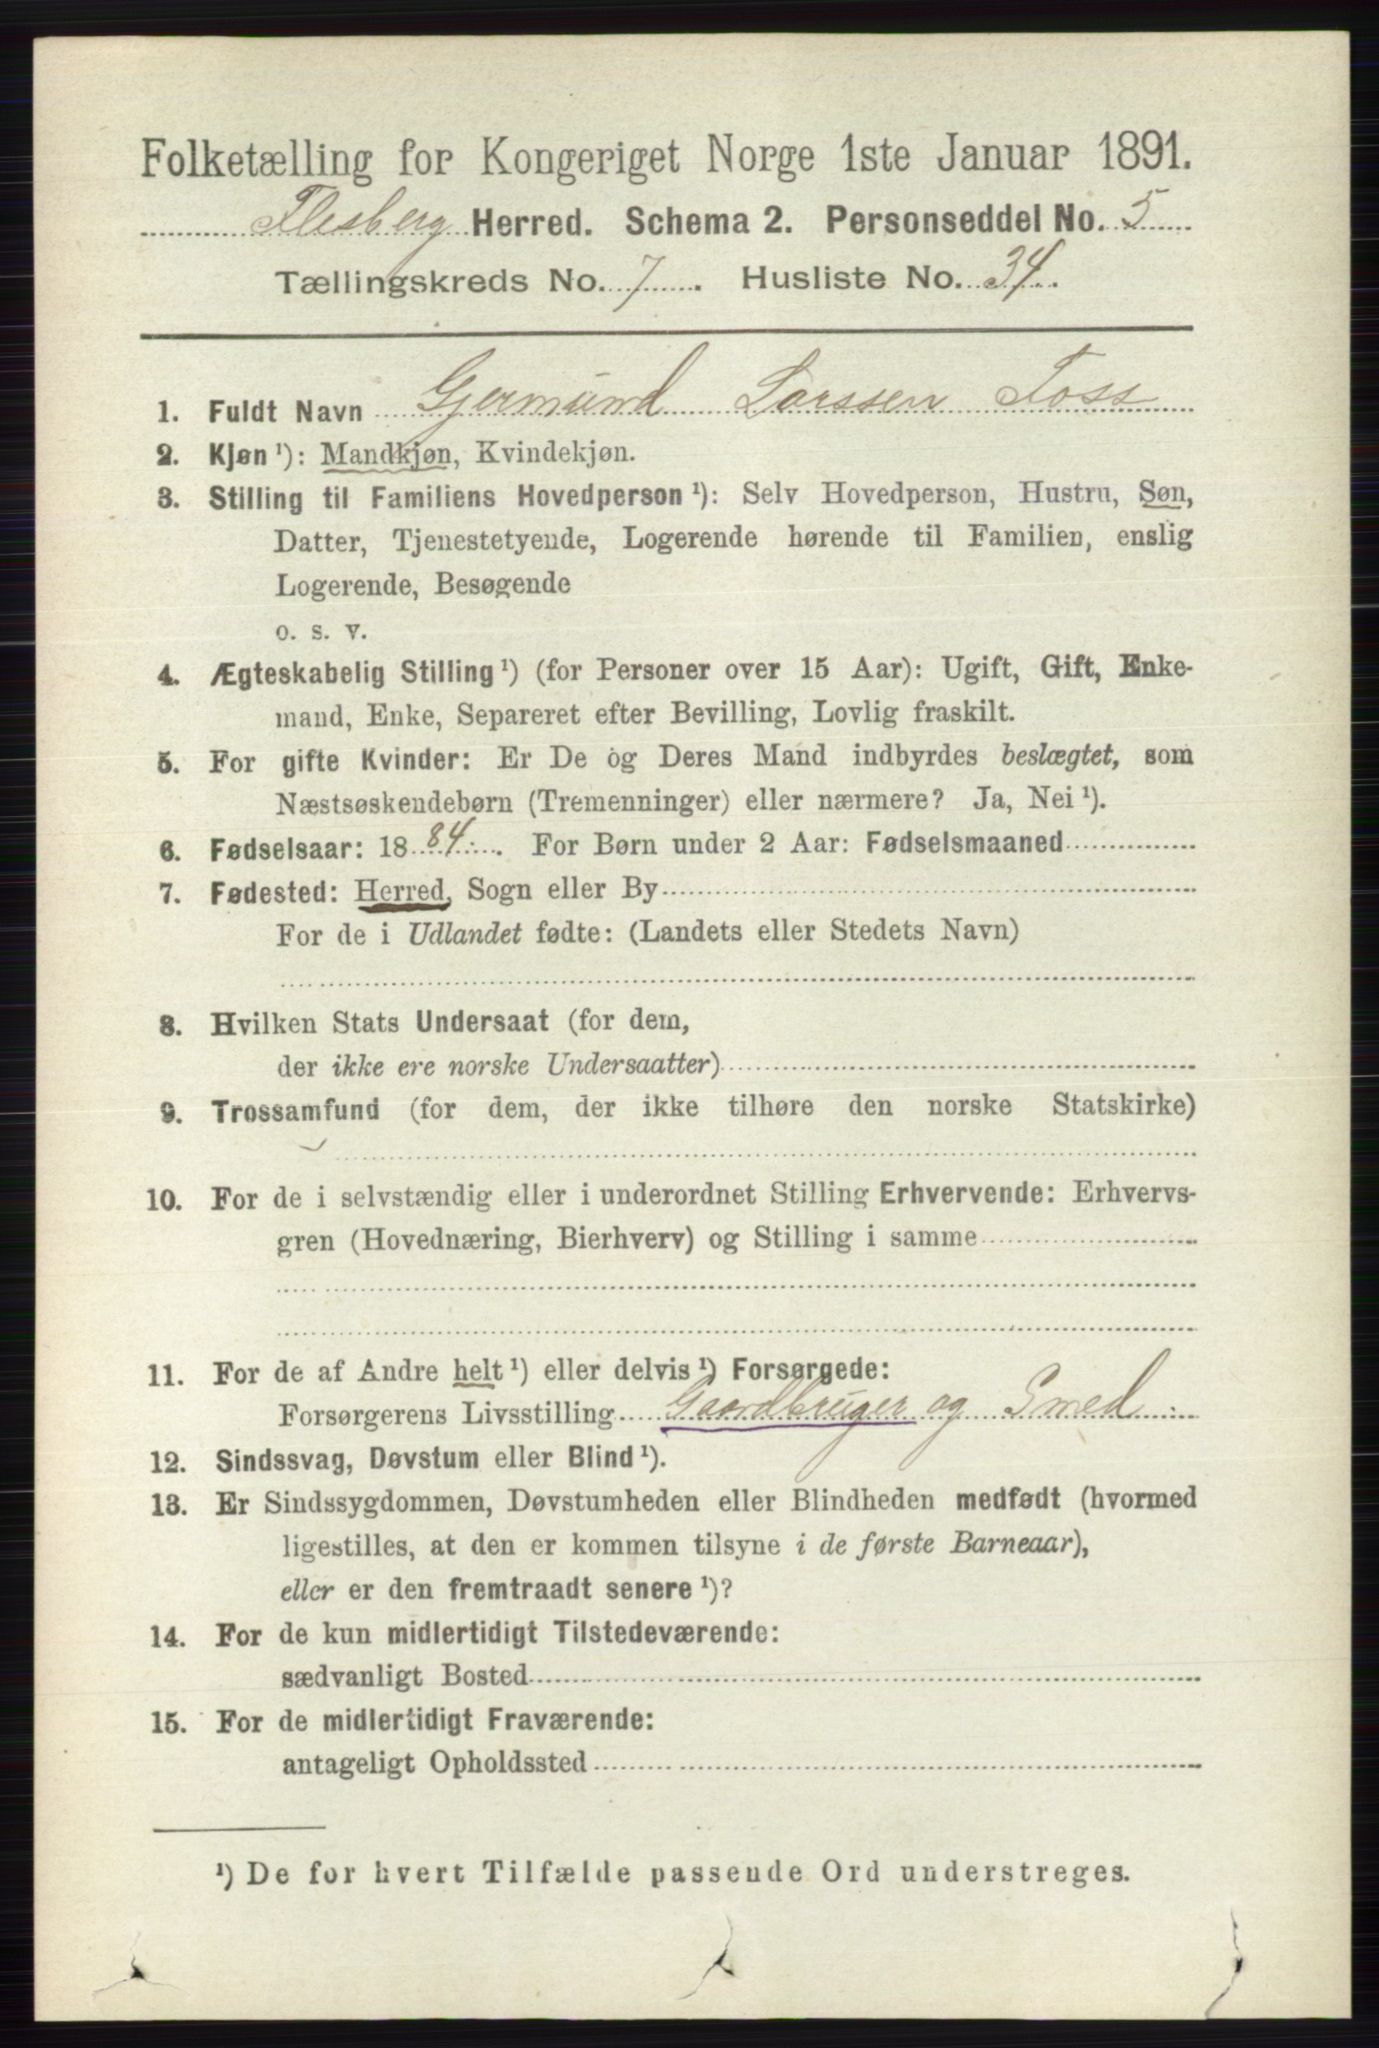 Folketælling for Kongeriget Norge 1ste Januar 1891.
Flesberg Herred. Schema 2. Personseddel No. 5
Tællingskreds No. 7. Husliste No. 34.
1. Fuldt Navn Gjermund Larssen Foss
2. Kjøn ¹): Mandkjøn, Kvindekjøn.
3. Stilling til Familiens Hovedperson ¹): Selv Hovedperson, Hustru, Søn,
Datter, Tjenestetyende, Logerende hørende til Familien, enslig
Logerende, Besøgende
o. s. v.
4. Ægteskabelig Stilling ¹) (for Personer over 15 Aar): Ugift, Gift, Enke-
mand, Enke, Separeret efter Bevilling, Lovlig fraskilt.
5. For gifte Kvinder: Er De og Deres Mand indbyrdes beslægtet, som
Næstsøskendebørn (Tremenninger) eller nærmere? Ja, Nei ¹).
6. Fødselsaar: 1884. For Børn under 2 Aar: Fødselsmaaned
7. Fødested: Herred, Sogn eller By
For de i Udlandet fødte: (Landets eller Stedets Navn)
8. Hvilken Stats Undersaat (for dem,
der ikke ere norske Undersaatter)
9. Trossamfund (for dem, der ikke tilhøre den norske Statskirke)
10. For de i selvstændig eller i underordnet Stilling Erhvervende: Erhvervs-
gren (Hovednæring, Bierhverv) og Stilling i samme
11. For de af Andre helt ¹) eller delvis ¹) Forsørgede:
Forsørgerens Livsstilling Gaardbruger og Smed
12. Sindssvag, Døvstum eller Blind ¹).
13. Er Sindssygdommen, Døvstumheden eller Blindheden medfødt (hvormed
ligestilles, at den er kommen tilsyne i de første Barneaar),
eller er den fremtraadt senere ¹)?
14. For de kun midlertidigt Tilstedeværende:
sædvanligt Bosted
15. For de midlertidigt Fraværende:
antageligt Opholdssted
¹) De for hvert Tilfælde passende Ord understreges.